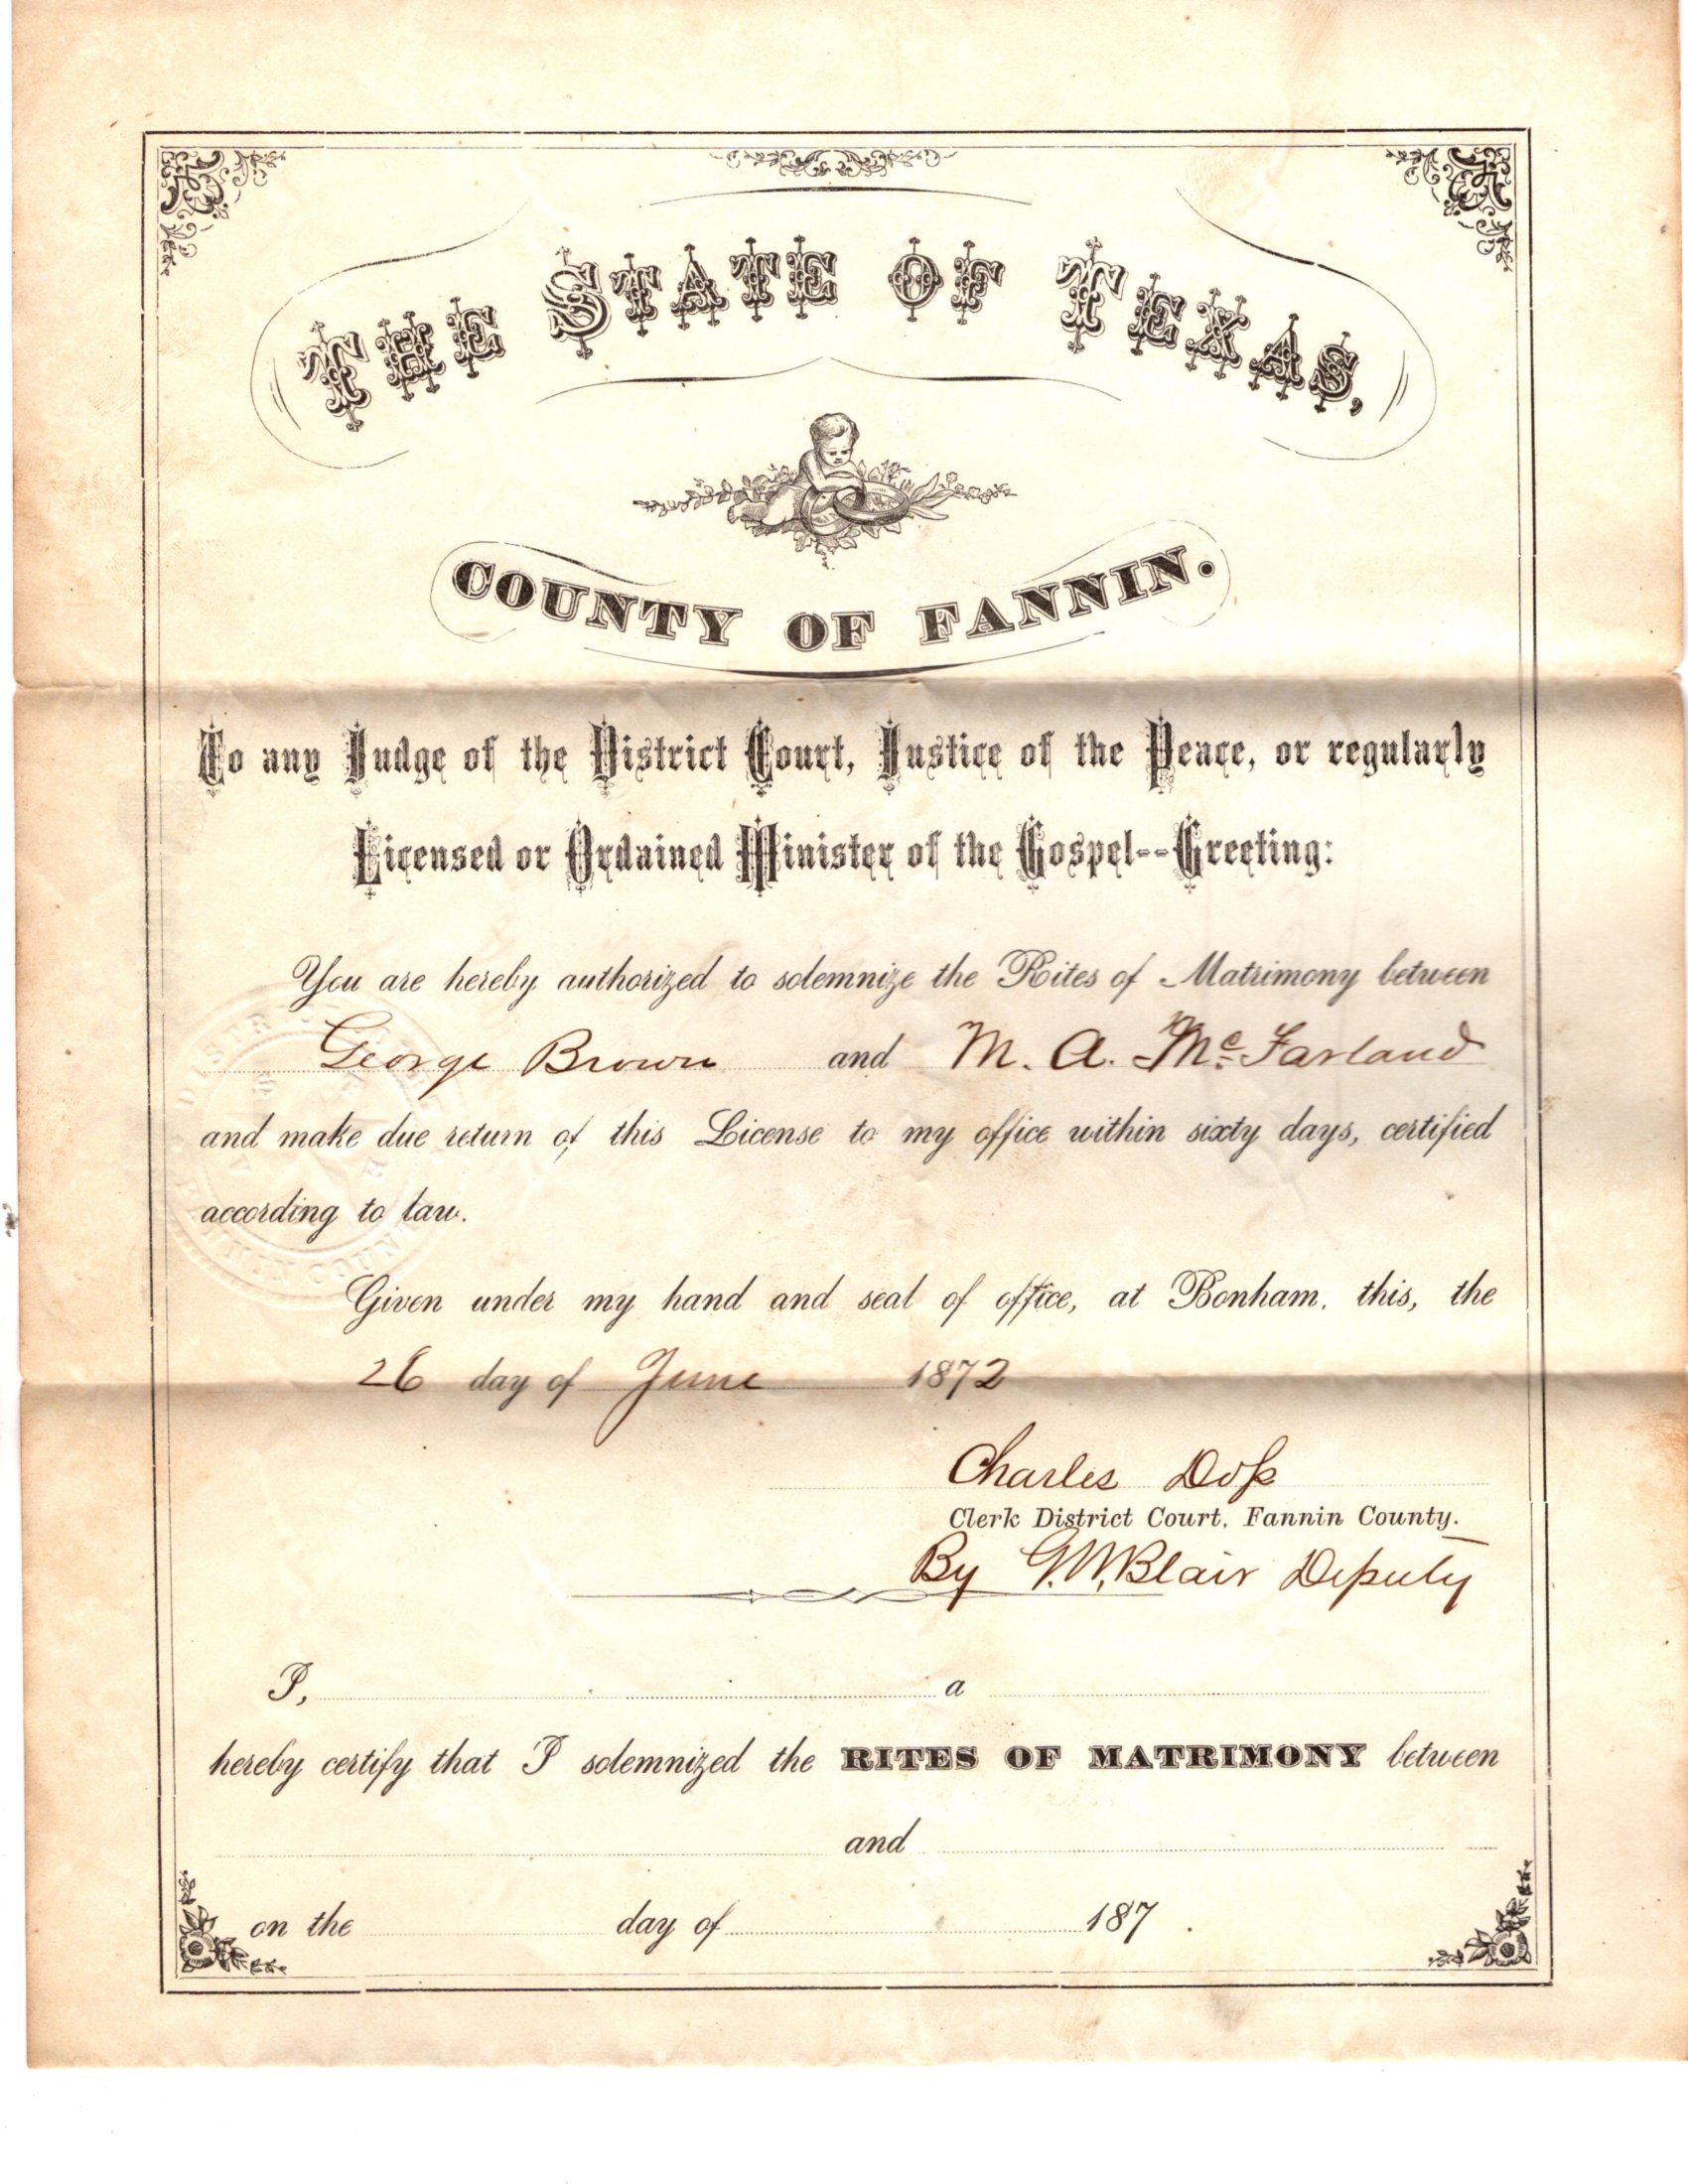 THE STATE OF TEXAS,
COUNTY OF FANNIN.
To any Judge of the District Court, Justice of the Peace, or regularly
Licensed or Ordained Minister of the Gospel--Greeting:
You are hereby authorized to solemnize the Rites of Matrimony between
George Brown and M. A. McFarland
and make due return of this License to my office within sixty days, certified
according to law.
Given under my hand and seal of office, at Bonham, this, the
26 day of June 1872
Charles Doss
Clerk District Court, Fannin County.
By G.W. Blair Deputy
I, a
hereby certify that I solemnized the RITES OF MATRIMONY between
and
on the day of 187 .